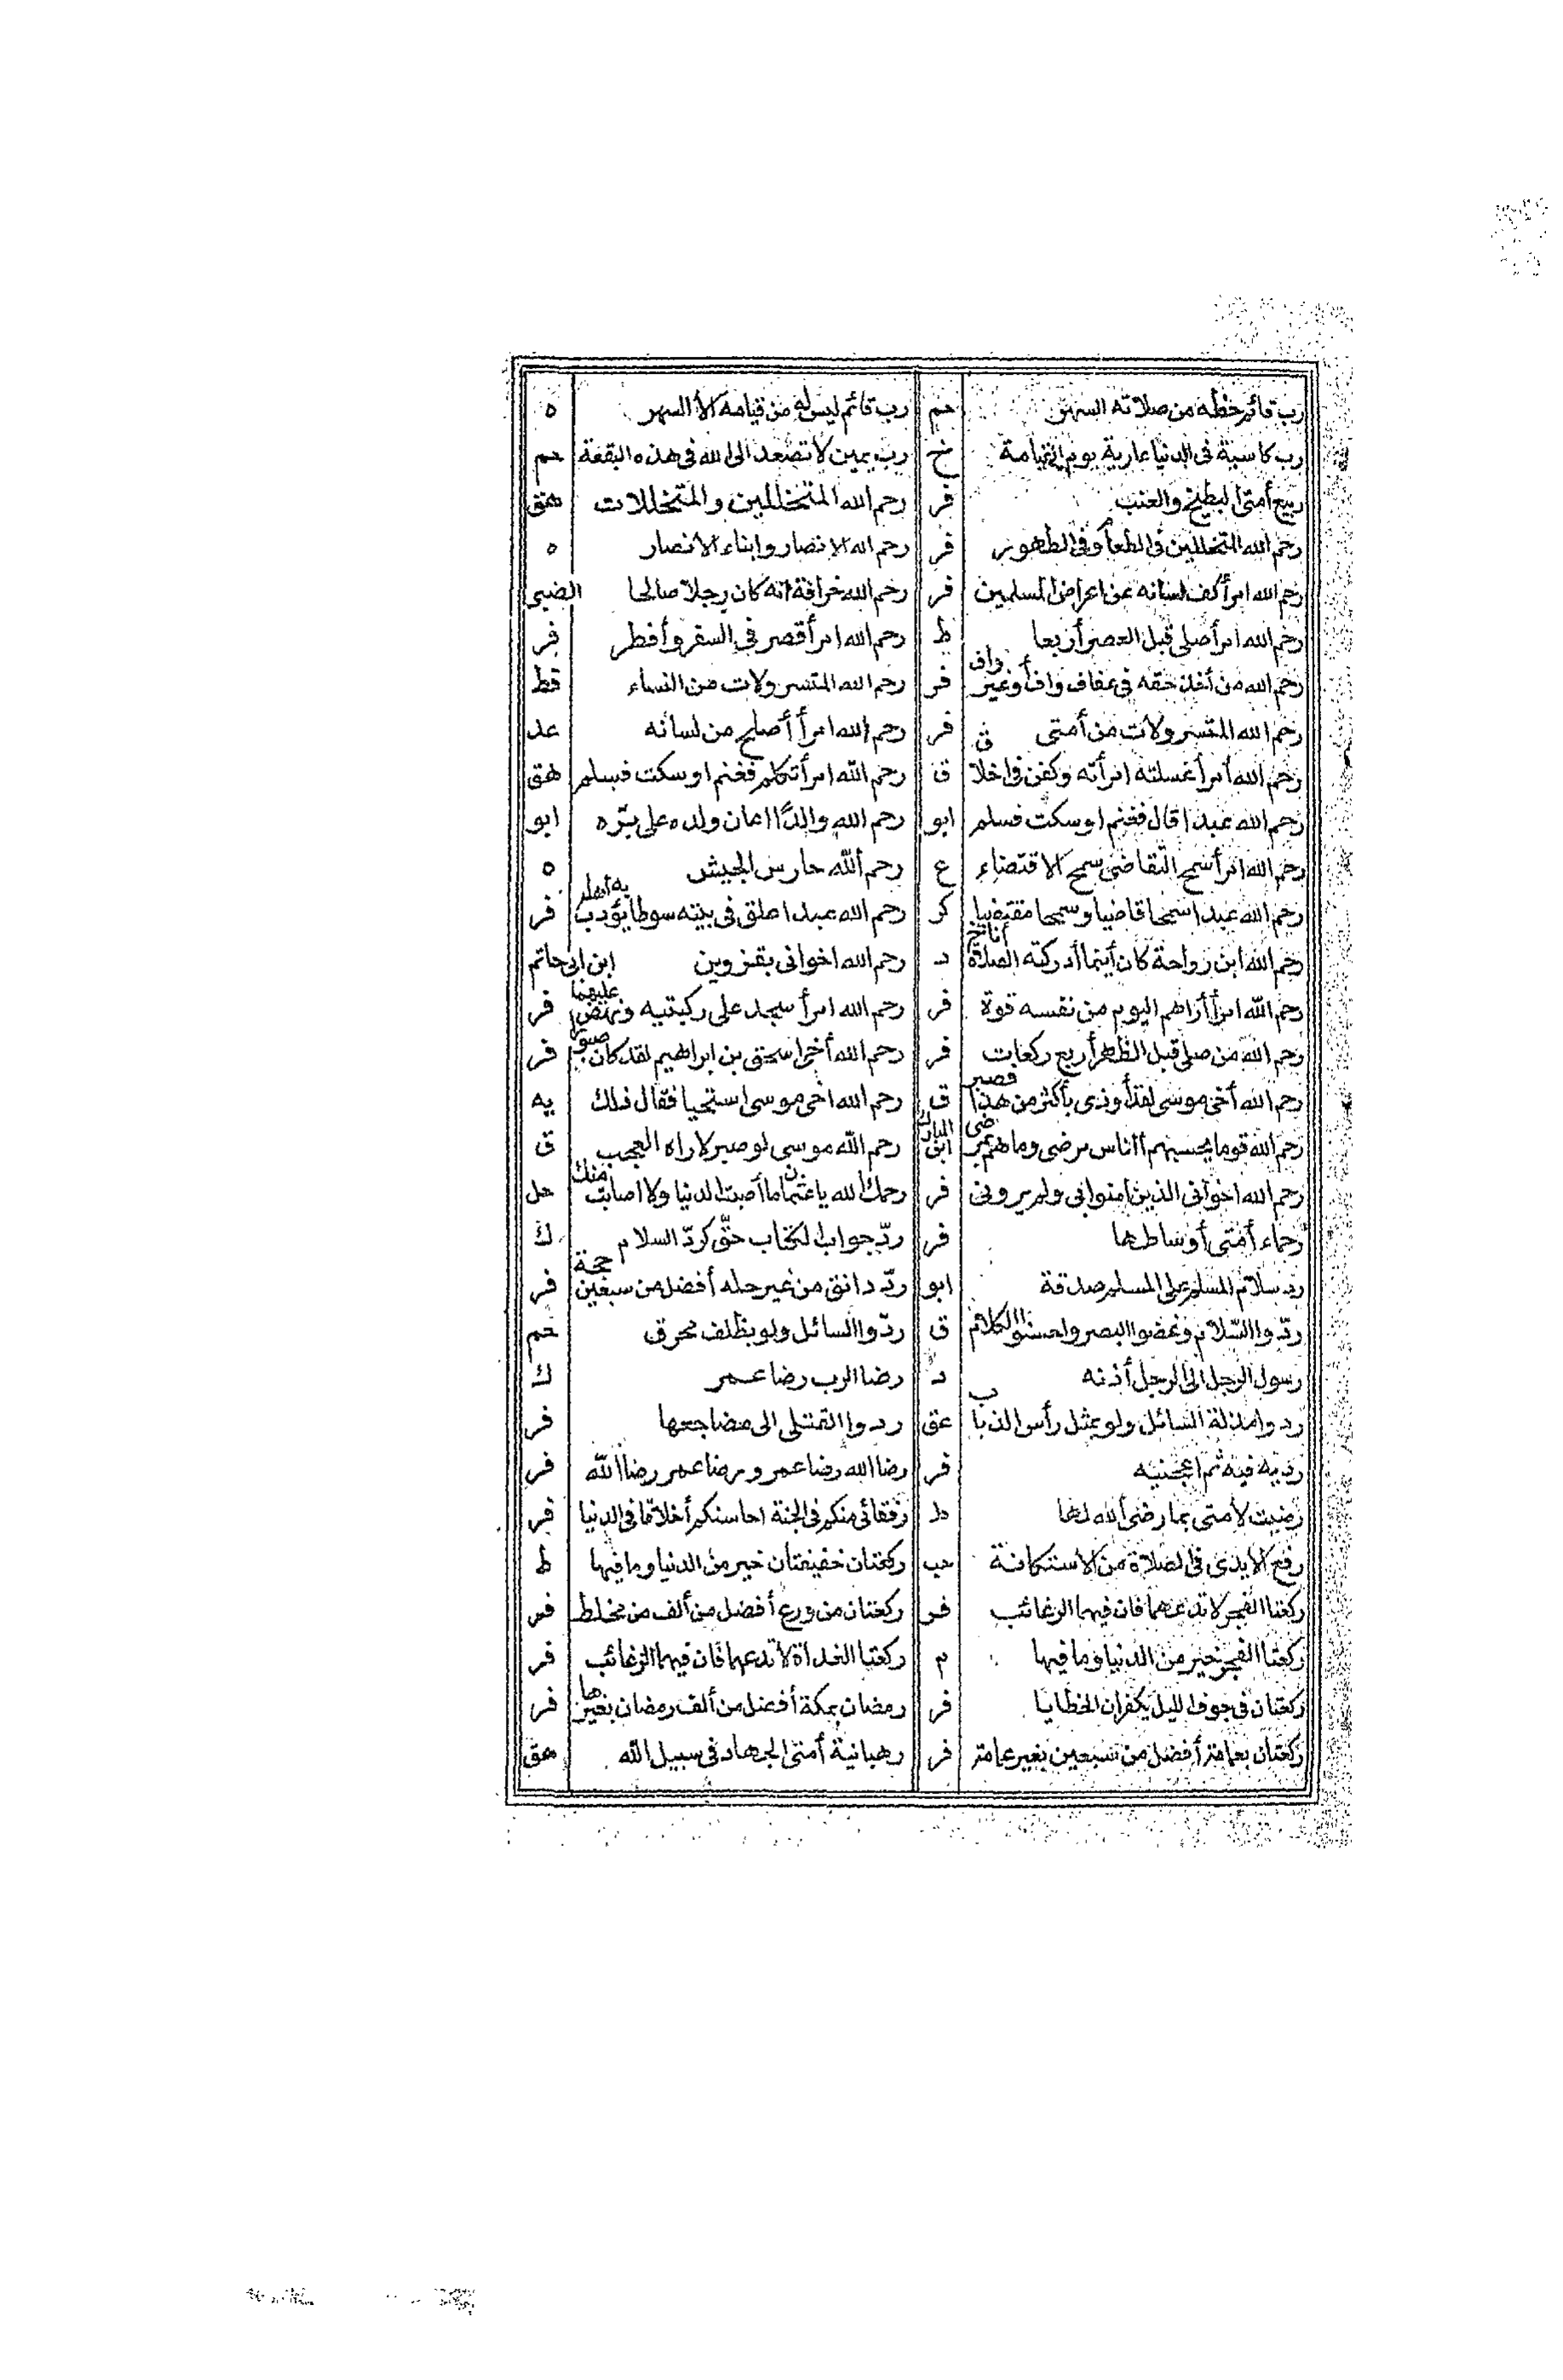 رب قائم حظه من صلاته السهر حم رب قائم ليس له من قيامه الا السهر ه
رب كاسية فى الدنيا عارية يوم القيامة خ رب يمين لا تصعد الى الله فى هذه البقعة حم
ربيع أمتى البطيخ والعنب فر رحم الله المتخللين والمتخللات هق
رحم الله المتخللين فى الطعام وفى الطهور فر رحم الله الانصار وابناء الانصار ه
رحم الله امرأ كف لسانه عن اعراض المسلمين فر رحم الله خرافة انه كان رجلا صالحا الضبى
رحم الله امرأ صلى قبل العصر أربعا ط رحم الله امرأ قصر فى السفر وأفطر فر
رحم الله من أخذ حقه فى عفاف واف أو غير واف فر رحم الله المتسرولات من النساء قط
رحم الله المتسرولات من أمتى فر رحم الله امرأ أصلح من لسانه عد
رحم الله امرأ غسلته امرأته وكفن فى اخلاق ق رحم الله امرأ تكلم فغنم او سكت فسلم هق
رحم الله عبدا قال فغنم او سكت فسلم ابو رحم الله والدًا اعان ولده على برّه ابو
رحم الله امرأ سمح التقاضى سمح الاقتضاء ع رحم الله حارس الجيش ه
رحم الله عبدا سمحا قاضيا وسمحا مقتضيا كر رحم الله عبدا علق فى بيته سوطا يؤدب به أهله فر
رحم الله ابن رواحة كان أينما أدركته الصلاة أناخ د رحم الله اخوانى بقزوين ابن ابى حاتم
رحم الله امرأ أراهم اليوم من نفسه قوة فر رحم الله امرأ سجد على ركبتيه ونهض عليهما فر
رحم الله من صلى قبل الظهر أربع ركعات فر رحم الله أخى اسحق بن ابراهيم لقد كان صبورا فر
رحم الله أخى موسى لقد أوذى بأكثر من هذا فصبر ق رحم الله اخى موسى استحيا فقال ذلك يه
رحم الله قوما يحسبهم الناس مرضى وما هم بمرضى ابن المبارك رحم الله موسى لو صبر لاراه العجب ق
رحم الله اخوانى الذين امنوا بى ولم يرونى فر رحمك الله يا عثمان ما أصبت الدنيا ولا اصابت منك حل
رحماء أمتى أوساطها فر ردّ جواب الكتاب حقّ كردّ السلام ك
رد سلام المسلم على المسلم صدقة ابو ردّ دانق من غير حله أفضل من سبعين حجة فر
ردّوا السّلام وغضوا البصر واحسنوا الكلام ق ردّوا السائل ولو بظلف محرق حم
رسول الرجل الى الرجل أذنه د رضا الرب رضا عمر ك
ردوا مذلة السائل ولو بمثل رأس الذباب عق ردوا القتلى الى مضاجعها فر
رديه فيه ثم اعجنيه فر رضا الله رضا عمر ورضا عمر رضا الله فر
رضيت لامتى بما رضى الله لها ط رفقائى منكم فى الجنة احاسنكم أخلاقا فى الدنيا فر
رفع الايدى فى الصلاة من الاستكانة حب ركعتان خفيفتان خير من الدنيا وما فيها ط
ركعتا الفجر لا تدعهما فان فيهما الرغائب فر ركعتان من ورع أفضل من ألف من مخلط فر
ركعتا الفجر خير من الدنيا وما فيها م ركعتا الغداة لا تدعهما فان فيهما الرغائب فر
ركعتان فى جوف الليل يكفران الخطايا فر رمضان بمكة أفضل من ألف رمضان بغيرها فر
ركعتان بعمامة أفضل من سبعين بغير عمامة فر رهبانية أمتى الجهاد فى سبيل الله هق